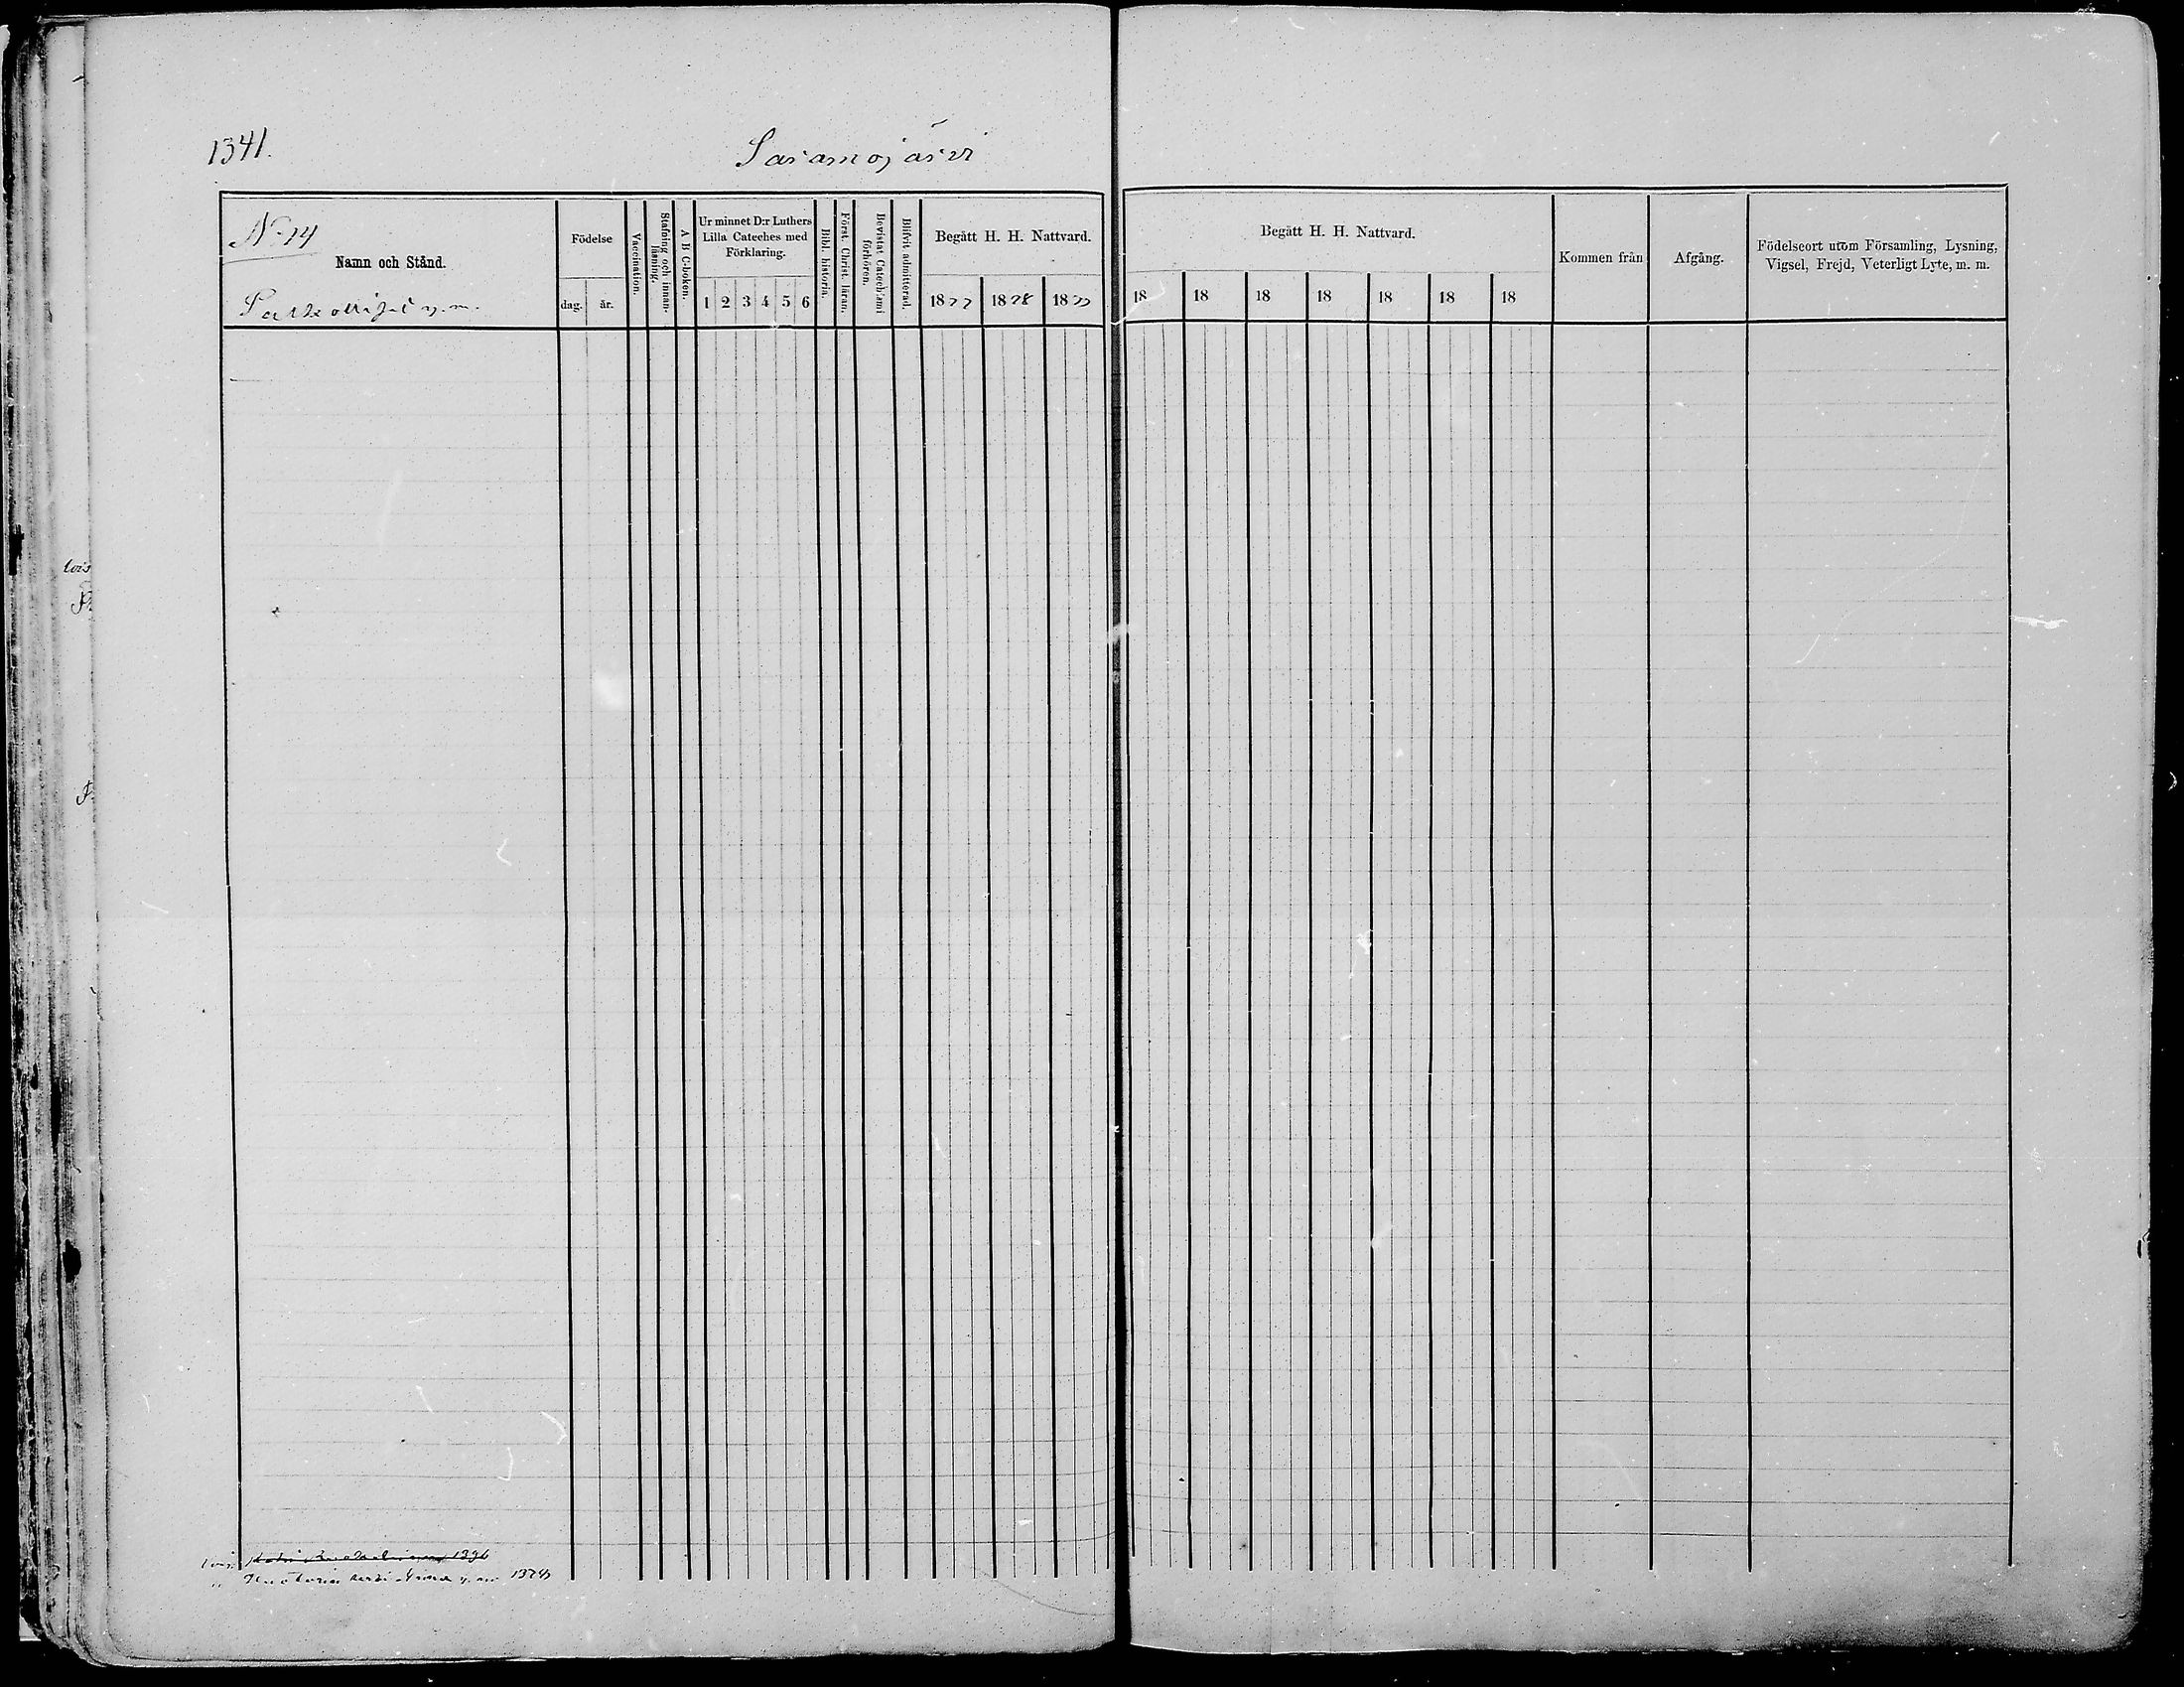 1341.
Saramojärvi
No 14
Namn och Stånd.
Födelse
dag. år.
Vaccination.
Stafning och innan-
läsning.
A B C-boken.
Ur minnet D:r Luthers
Lilla Cateches med
Förklaring.
1 2 3 4 5 6
Bibl. historia.
Först. Christ. läran.
Bevistat Catech'smi
förhören.
Blifvit admitterad.
Begått H. H. Nattvard.
1877 1878 1879
Begått H. H. Nattvard.
18 18 18 18 18 18 18
Kommen från
Afgång.
Födelseort utom Församling, Lysning,
Vigsel, Frejd, Veterligt Lyte, m. m.
1396